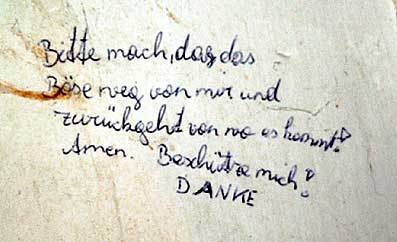 Bitte mach, das das
Böse weg von mir und
zurückgeht von wo es kommt!
Amen. Beschütze mich!
DANKE